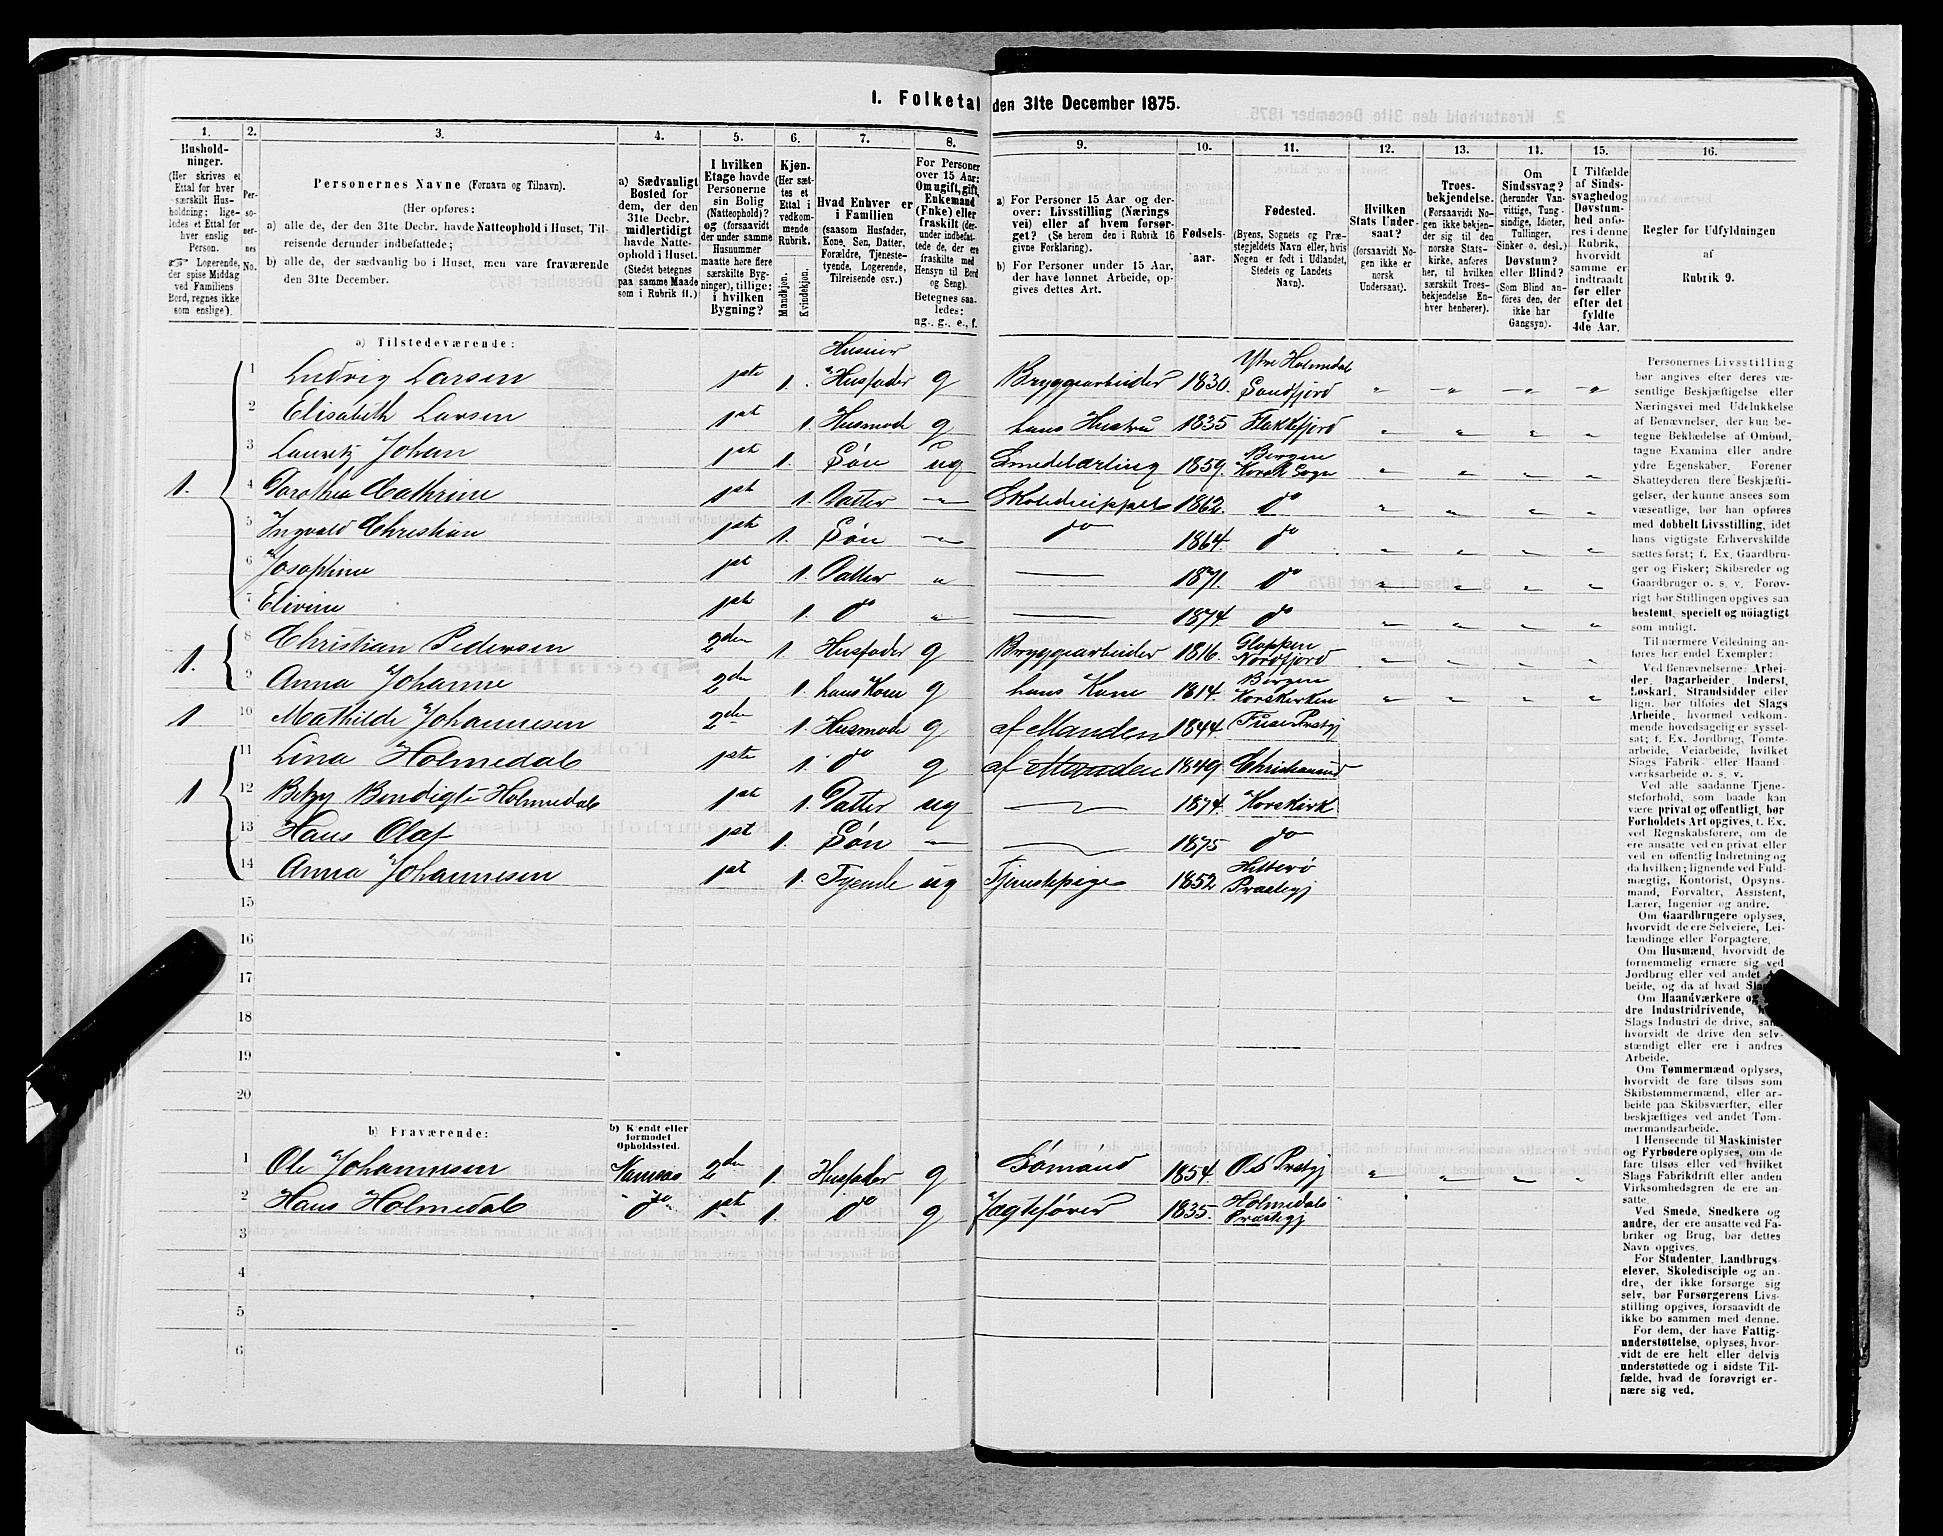 1. Folketal den 31te December 1875.
1. 2. 3. 4. 5. 6. 7. 8. 9. 10. 11. 12. 13. 14. 15. 16.
Husholdninger.
(Her skrives et
Ettal for hver
særskilt Husholdning; ligeledes
et Ettal for
hver enslig
Person.
☞ Logerende,
der spise Middag
ved Familiens
Bord, regnes ikke
som enslige).
Personernes
No.
Personernes Navne (Fornavn og Tilnavn).
(Her opføres:
a) alle de, der den 31te Decbr. havde Natteophold i Huset, Tilreisende derunder indbefattede;
b) alle de, der sædvanlig bo i Huset, men vare fraværende
den 31te December.
a) Sædvanligt
Bosted for
dem, der den
31te Decbr.
midlertidigt
havde Natteophold i Huset.
(Stedet betegnes
paa samme Maade
som i Rubrik 11.)
I hvilken
Etage havde
Personerne
sin Bolig
(Natteophold)?
og (forsaavidt
der under samme
Husnummer
maatte høre flere
særskilte Bygninger), tillige:
i hvilken
Bygning?
Kjøn.
(Her sættes et
Ettal i
vedkommende
Rubrik.
Mandkjøn.
Kvindekjøn.
Hvad Enhver er
i Familien
(saasom Husfader,
Kone, Søn, Datter,
Forældre, Tjenestetyende, Logerende,
Tilreisende osv.)
For Personer
over 15 Aar:
Om ugift, gift,
Enkemand
(Enke) eller
fraskilt
Betegnes saaledes:
ug., g., e., f.
a) For Personer 15 Aar og derover: Livsstilling (Næringsvei) eller af hvem forsørget? (Se herom den i Rubrik 16
givne Forklaring).
b) For Personer under 15 Aar,
der have lønnet Arbeide, opgives dettes Art.
Fødselsaar.
Fødested.
(Byens, Sognets og Præstegjeldets Navn eller, hvis
Nogen er født i Udlandet,
Stedets og Landets
Navn).
Hvilken
Stats Undersaat?
(forsaavidt Nogen ikke er
norsk
Undersaat).
Troesbekjendelse.
(Forsaavidt Nogen ikke bekjender sig til den
norske Statskirke, anføres
her, til hvilken
særskilt Troesbekjendelse Enhver henhører).
Om
Sindssvag?
(herunder Vanvittige, Tungsindige, Idioter,
Tullinger,
Sinker o. desl.)
Døvstum?
eller Blind?
(Som Blind anføres den, der
ikke har
Gangsyn).
I Tilfælde
af Sindssvaghed og
Døvstumhed anføres i denne
Rubrik,
hvorvidt
samme er
indtraadt
før eller
efter det
fyldte
4de Aar.
Regler for Udfyldningen
af
Rubrik 9.
a) Tilstedeværende:
Huseier Ytre Holmedal
1 Ludvig Larsen 1ste 1. Husfader g Bryggearbeider 1830. Søndfjord
2 Elisabeth Larsen 1ste 1. Husmod g hans Hustru 1835 Flakkefjord
3 Lauritz Johan 1ste 1. Søn ug Smedelærling 1859. Bergen Korsk Sogn
1. 4 Dorothea Cathrine 1ste 1. Datter " Skolediscippel 1862. do
5 Ingvald Christian 1ste 1. Søn " do 1864. do
6 Josephine 1ste 1. Datter " 1871. do
7 Elivine 1ste 1. do " 1874 do
1. 8 Christian Pedersen 2den 1 Husfader g Bryggearbeider 1816. Gloppen Nordfjord
9 Anna Johanne 2den 1. hans Kone g hans Kone 1814. Bergen Korskirken
1 10 Mathilde Johannesen 2den 1. Husmode g af Manden 1844.
11 Lina Holmedal 1ste 1. do g af Manden 1849 Christiansund
1 12 Betzy Bendigte Holmedal 1ste 1. Datter ug 1874. Korskirk
13 Hans Olaf 1ste 1. Søn 1875 do
14 Anna Johannesen 1ste 1. Tyende ug Tjenestepige 1852 Hitterø Præstegj
15
16
17
18
19
20
b) Fraværende:
b) Kjendt eller
formodet
Opholdssted.
1 Ole Johannesen Namsos 2den 1. Husfader g Sømand 1854. Os Prstgj
2 Hans Holmedal do 1ste 1. do g Jægtefører 1835. Holmedals Præstegj
3
4
5
6
Personernes Livsstilling
bør angives efter deres væsentlige Beskjæftigelse eller
Næringsvei med Udelukkelse
af Benævnelser, der kun betegne Beklædelse af Ombud,
tagne Examina eller andre
ydre Egenskaber. Forener
Skatteyderen flere Beskjæftigelser, der kunne ansees som
væsentlige, bør han opføres
med dobbelt Livsstilling, idet
hans vigtigste Erhvervskilde
sættes først; f. Ex. Gaardbruger og Fisker; Skibsreder og
Gaardbruger o. s. v. Forøvrigt bør Stillingen opgives saa
bestemt, specielt og nöiagtigt
som muligt.
Til nærmere Veiledning anføres her endel Exempler:
Ved Benævnelserne: Arbeider, Dagarbeider, Inderst,
Løskarl, Strandsidder eller
lign. bør tilføies det Slags
Arbeide, hvormed vedkommende hovedsagelig er sysselsat; f. Ex. Jordbrug, Tomtearbeide, Veiarbeide, hvilket
Slags Fabrik- eller Haandværksarbeide o. s. v.
Ved alle saadanne Tjenesteforhold, som baade kan
være privat og offentligt, bør
Forholdets Art opgives, f. Ex.
ved Regnskabsførere, om de
ere ansatte ved en privat eller
ved en offentlig Indretning og
da hvilken; lignende ved Fuldmægtig, Kontorist, Opsynsmand, Forvalter, Assistent,
Lærer, Ingeniør og andre.
Om Gaardbrugere oplyses,
hvorvidt de ere Selveiere, Leilændinge eller Forpagtere.
Om Husmænd, hvorvidt de
fornemmelig ernære sig ved
Jordbrug eller ved andet Arbeide, og da af hvad
Om Haandværkere og
dre Industridrivende,
Slags Industri de drive, samt
hvorvidt de drive den selvstændigt eller ere i andres
Arbeide.
Om Tømmermænd oplyses,
hvorvidt de fare tilsøs som
Skibstømmermænd, eller arbeide paa Skibsværfter, eller
beskjæftiges ved andet Tømmermandsarbeide.
I Henseende til Maskinister
og Fyrbødere oplyses, om de
fare tilsøs eller ved hvilket
Slags Fabrikdrift eller anden
Virksomhedsgren de ere ansatte.
Ved Smede, Snedkere og
andre, der ere ansatte ved Fabriker og Brug, bør dettes
Navn opgives.
For Studenter, Landbrugselever, Skoledisciple og andre, der ikke forsørge sig
selv, bør Forsørgerens Livsstilling opgives, forsaavidt de
ikke bo sammen med denne.
For dem, der have Fattigunderstøttelse, oplyses, hvorvidt de ere helt eller delvis
understøttede og i sidste Tilfælde, hvad de forøvrigt ernære sig ved.